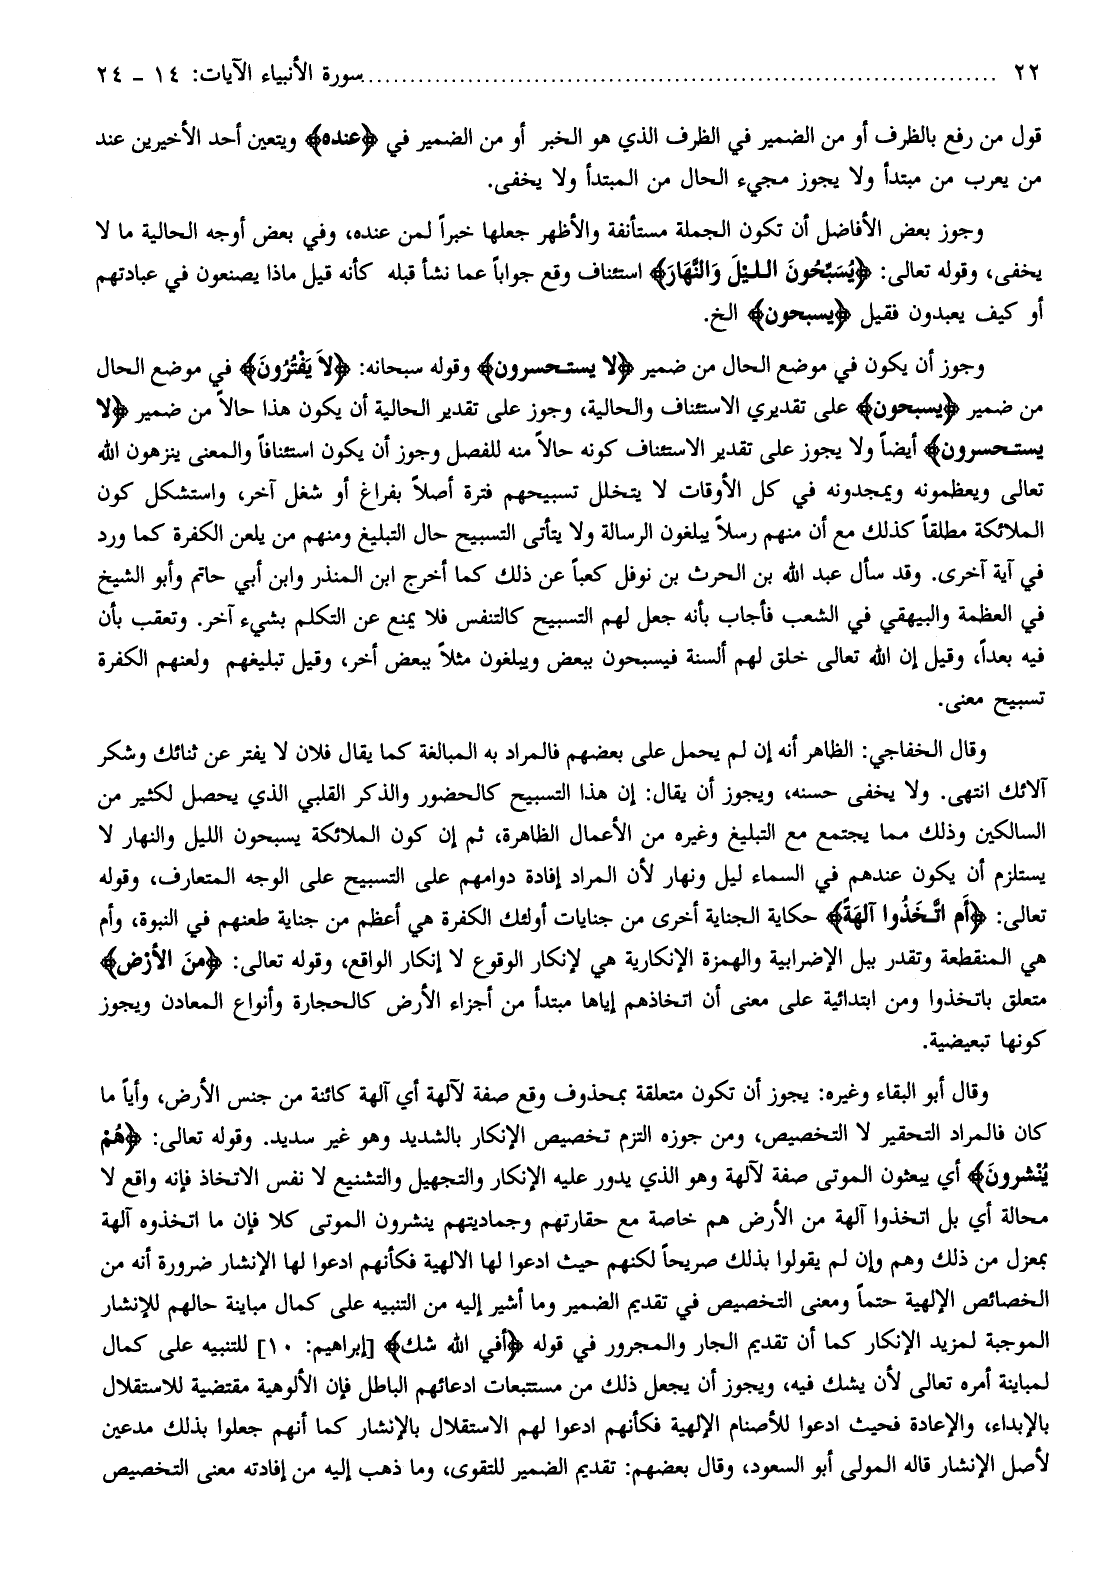 ٢٢ ........................................................................ سورة الأنبياء الآيات: ١٤ ـ ٢٤
قول من رفع بالظرف أو من الضمير في الظرف الذي هو الخبر أو من الضمير في ﴿عنده﴾ ويتعين أحد الأخيرين عند
من يعرب من مبتدأ ولا يجوز مجيء الحال من المبتدأ ولا يخفى.
وجوز بعض الأفاضل أن تكون الجملة مستأنفة والأظهر جعلها خبراً لمن عنده، وفي بعض أوجه الحالية ما لا
يخفى، وقوله تعالى: ﴿يُسَبِّحُونَ اللـيْلَ وَالنَّهَارَ﴾ استئناف وقع جواباً عما نشأ قبله كأنه قيل ماذا يصنعون في عبادتهم
أو كيف يعبدون فقيل ﴿يسبحون﴾ الخ.
وجوز أن يكون في موضع الحال من ضمير ﴿لا يستحسرون﴾ وقوله سبحانه: ﴿لاَ يَفْتُرُونَ﴾ في موضع الحال
من ضمير ﴿يسبحون﴾ على تقديري الاستئناف والحالية، وجوز على تقدير الحالية أن يكون هذا حالاً من ضمير ﴿لا
يستحسرون﴾ أيضاً ولا يجوز على تقدير الاستئناف كونه حالاً منه للفصل وجوز أن يكون استئنافاً والمعنى ينزهون الله
تعالى ويعظمونه ويمجدونه في كل الأوقات لا يتخلل تسبيحهم فترة أصلاً بفراغ أو شغل آخر، واستشكل كون
الملائكة مطلقاً كذلك مع أن منهم رسلاً يبلغون الرسالة ولا يتأتى التسبيح حال التبليغ ومنهم من يلعن الكفرة كما ورد
في آية أخرى. وقد سأل عبد الله بن الحرث بن نوفل كعباً عن ذلك كما أخرج ابن المنذر وابن أبي حاتم وأبو الشيخ
في العظمة والبيهقي في الشعب فأجاب بأنه جعل لهم التسبيح كالتنفس فلا يمنع عن التكلم بشيء آخر. وتعقب بأن
فيه بعداً، وقيل إن الله تعالى خلق لهم ألسنة فيسبحون ببعض ويبلغون مثلاً ببعض أخر، وقيل تبليغهم ولعنهم الكفرة
تسبيح معنى.
وقال الخفاجي: الظاهر أنه إن لم يحمل على بعضهم فالمراد به المبالغة كما يقال فلان لا يفتر عن ثنائك وشكر
آلائك انتهى. ولا يخفى حسنه، ويجوز أن يقال: إن هذا التسبيح كالحضور والذكر القلبي الذي يحصل لكثير من
السالكين وذلك مما يجتمع مع التبليغ وغيره من الأعمال الظاهرة، ثم إن كون الملائكة يسبحون الليل والنهار لا
يستلزم أن يكون عندهم في السماء ليل ونهار لأن المراد إفادة دوامهم على التسبيح على الوجه المتعارف، وقوله
تعالى: ﴿أَم اتَّـخَذُوا آلهَةً﴾ حكاية الجناية أخرى من جنايات أولئك الكفرة هي أعظم من جناية طعنهم في النبوة، وأم
هي المنقطعة وتقدر ببل الإضرابية والهمزة الإنكارية هي لإنكار الوقوع لا إنكار الواقع، وقوله تعالى: ﴿منَ الأرْض﴾
متعلق باتخذوا ومن ابتدائية على معنى أن اتخاذهم إياها مبتدأ من أجزاء الأرض كالحجارة وأنواع المعادن ويجوز
كونها تبعيضية.
وقال أبو البقاء وغيره: يجوز أن تكون متعلقة بمحذوف وقع صفة لآلهة أي آلهة كائنة من جنس الأرض، وأياً ما
كان فالمراد التحقير لا التخصيص، ومن جوزه التزم تخصيص الإنكار بالشديد وهو غير سديد. وقوله تعالى: ﴿هُمْ
يُنْشرونَ﴾ أي يبعثون الموتى صفة لآلهة وهو الذي يدور عليه الإنكار والتجهيل والتشنيع لا نفس الاتخاذ فإنه واقع لا
محالة أي بل اتخذوا آلهة من الأرض هم خاصة مع حقارتهم وجماديتهم ينشرون الموتى كلا فإن ما اتخذوه آلهة
بمعزل من ذلك وهم وإن لم يقولوا بذلك صريحاً لكنهم حيث ادعوا لها الالهية فكأنهم ادعوا لها الإنشار ضرورة أنه من
الخصائص الإلهية حتماً ومعنى التخصيص في تقديم الضمير وما أشير إليه من التنبيه على كمال مباينة حالهم للإنشار
الموجبة لمزيد الإنكار كما أن تقديم الجار والمجرور في قوله ﴿أفي الله شك﴾ [إبراهيم: ١٠] للتنبيه على كمال
لمباينة أمره تعالى لأن يشك فيه، ويجوز أن يجعل ذلك من مستتبعات ادعائهم الباطل فإن الألوهية مقتضية للاستقلال
بالإبداء، والإعادة فحيث ادعوا للأصنام الإلهية فكأنهم ادعوا لهم الاستقلال بالإنشار كما أنهم جعلوا بذلك مدعين
لأصل الإنشار قاله المولى أبو السعود، وقال بعضهم: تقديم الضمير للتقوى، وما ذهب إليه من إفادته معنى التخصيص